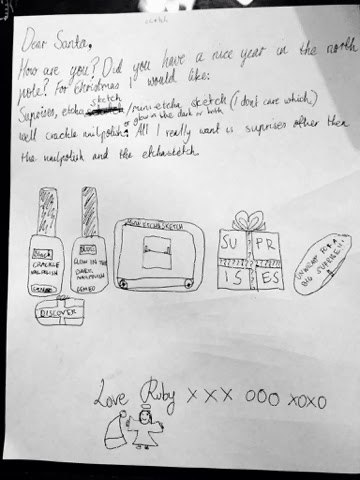 Dear Santa,
How are you? Did you have a nice year in the north
pole? For Christmas I would like:
Suprises, etcha sketch/mini etcha sketch (I don't care which)
well crackle nailpolish or glow in the dark or both. All I really want is suprises other then
the nailpolish and the etchasketch.
Black
CRACKLE
NAILPOLISH
BLUE
GLOW IN THE
DARK
NAILPOLISH
MINI ETCHASKETCH
SU PR
IS ES
UNWRAP FOR A
BIG SUPRISE!!
DISCOVER
Love Ruby X X X OOO XOXO